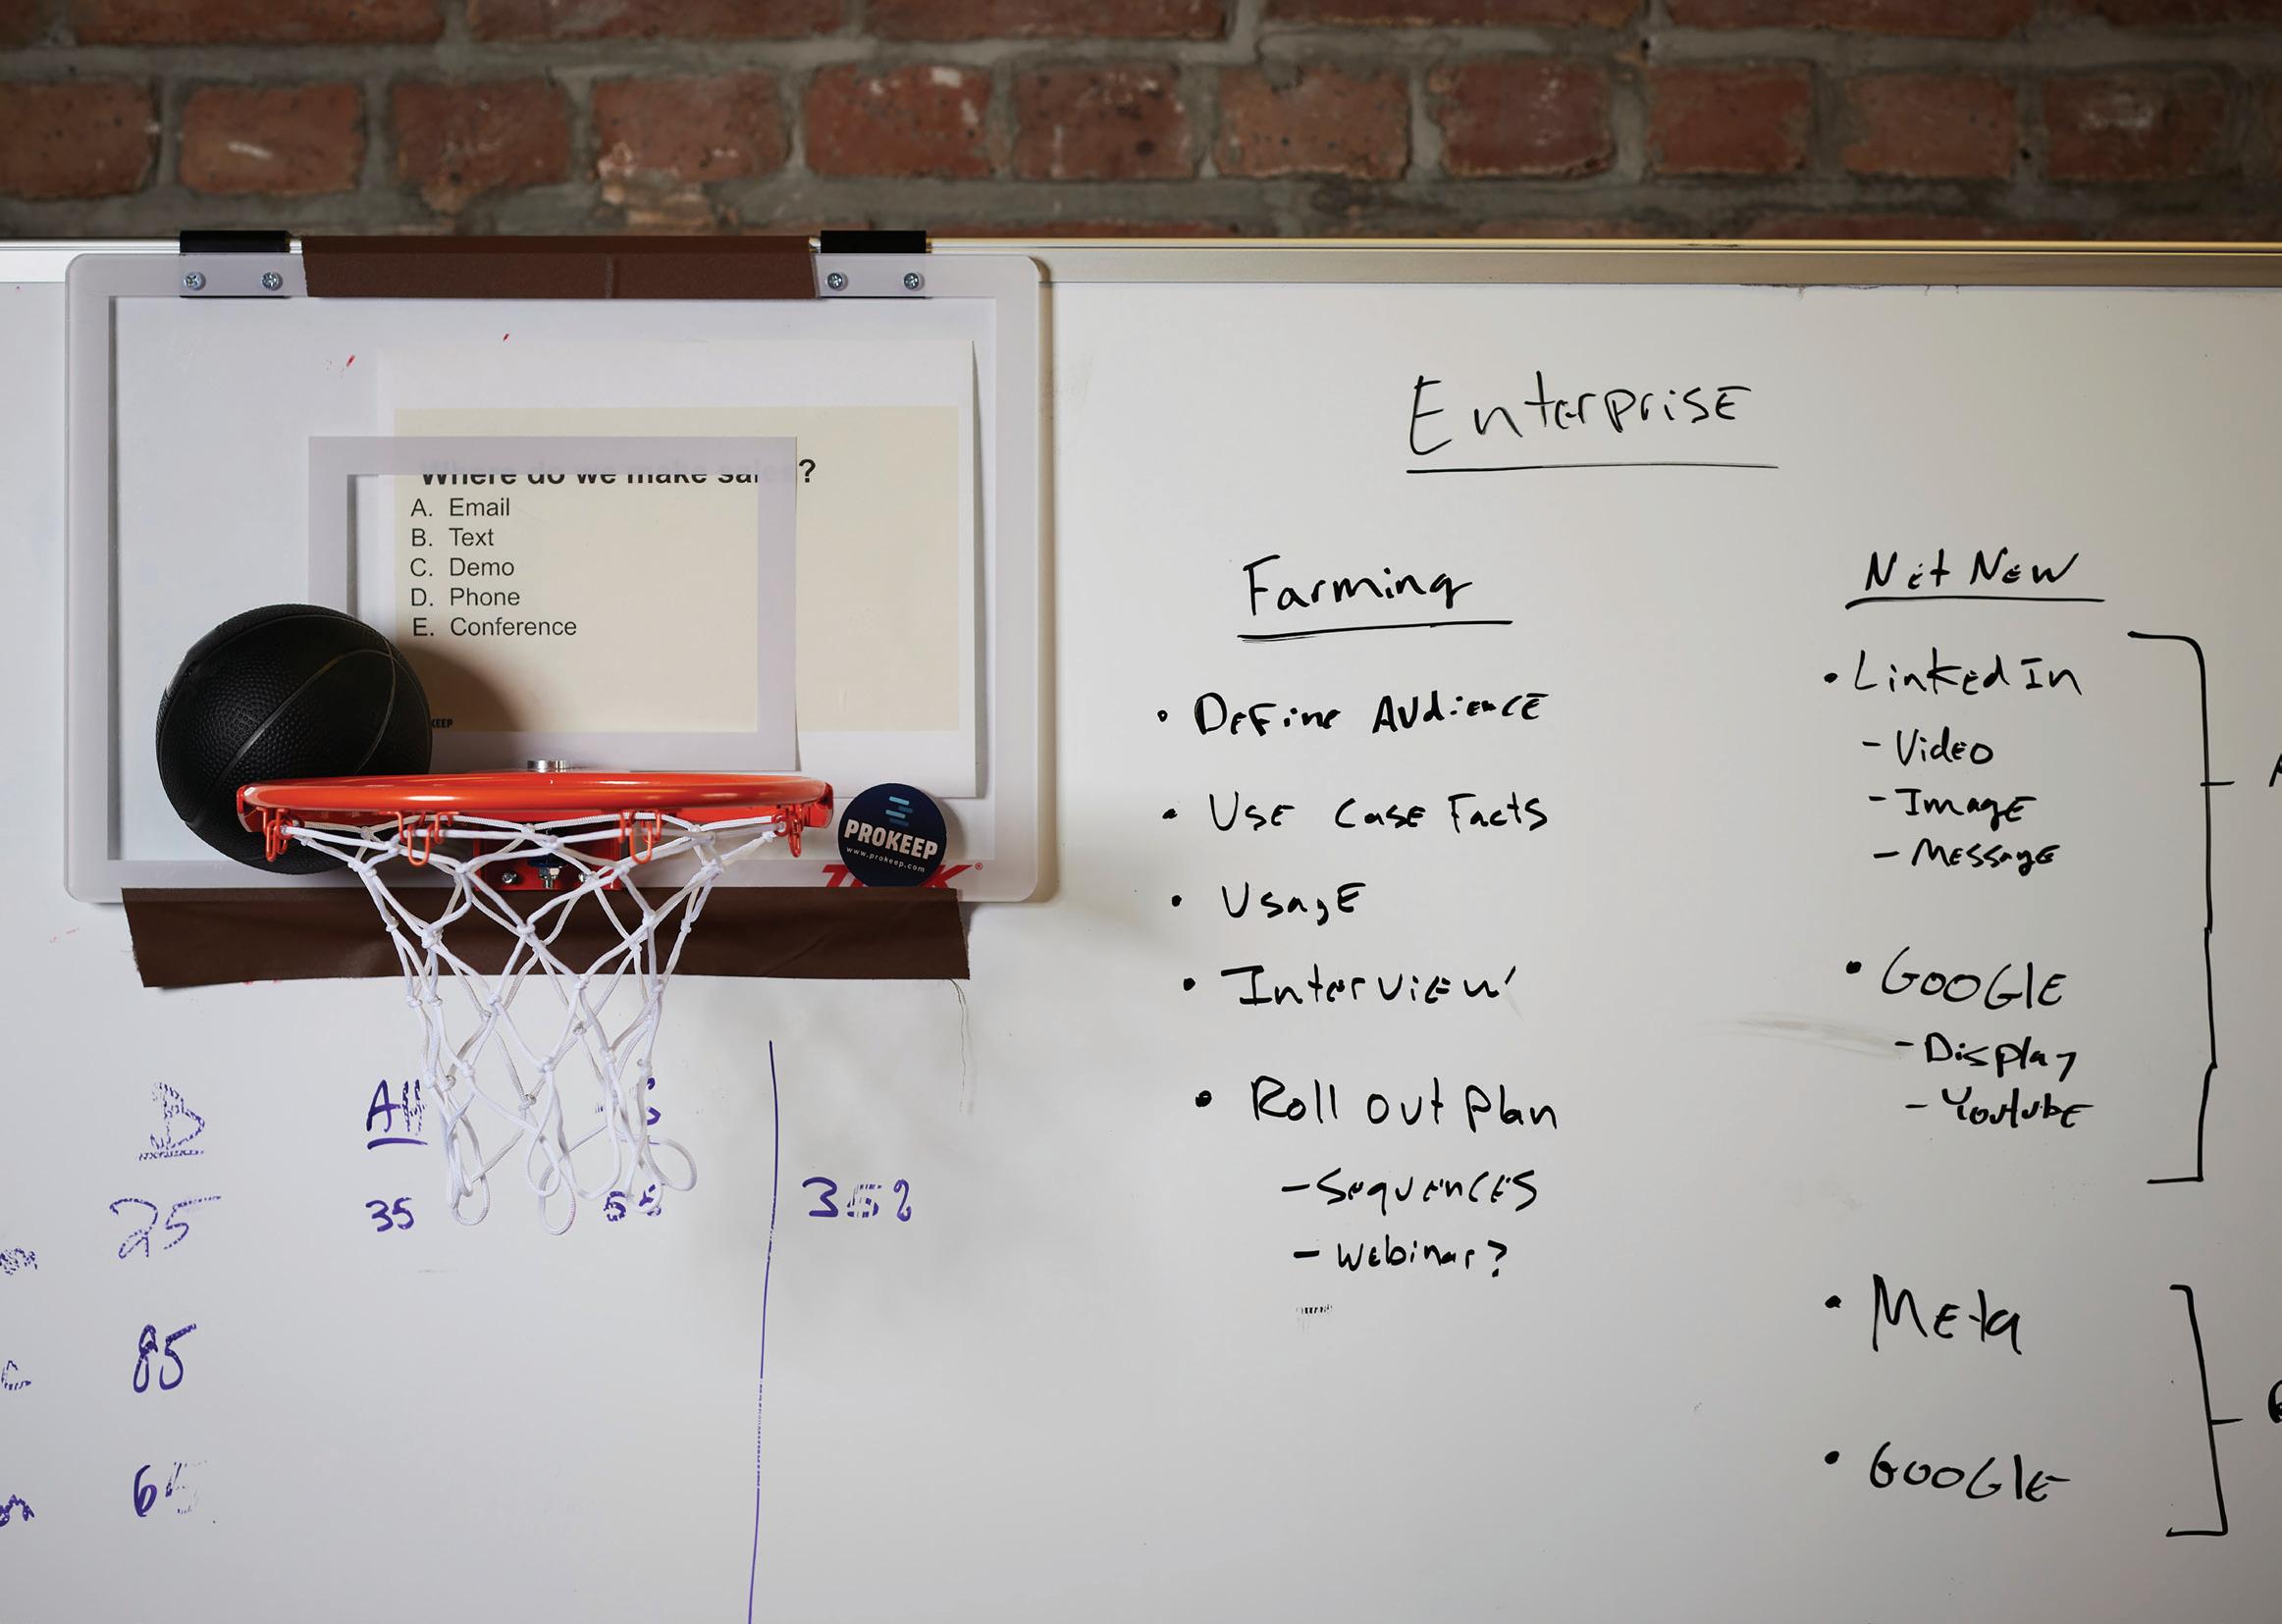 Where do we make sales?
A. Email
B. Text
C. Demo
D. Phone
E. Conference
PROKEEP
www.prokeep.com
B
All
25
35
352
85
65
Enterprise
Farming
• Define Audience
• Use Case Facts
• Usage
• Interview
• Roll out Plan
- Sequences
- Webinar?
Net New
• LinkedIn
- Video
- Image
- Message
• Google
- Display
- Youtube
• Meta
• Google